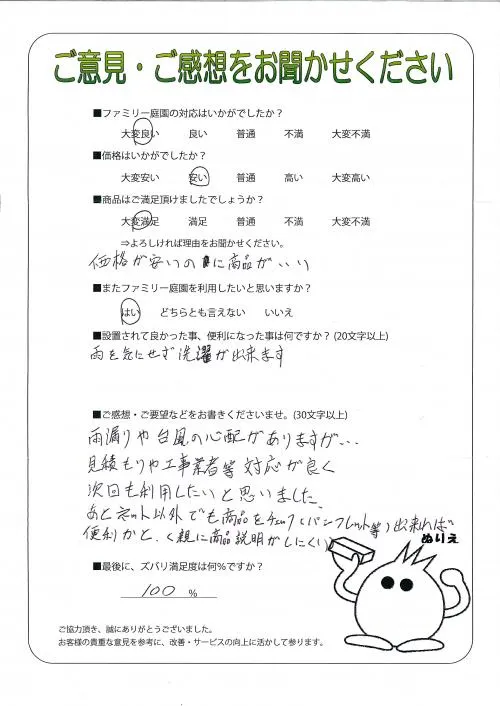 ご意見・ご感想をお聞かせください
■ファミリー庭園の対応はいかがでしたか？
大変良い 良い 普通 不満 大変不満
■価格はいかがでしたか？
大変安い 安い 普通 高い 大変高い
■商品はご満足頂けましたでしょうか？
大変満足 満足 普通 不満 大変不満
⇒よろしければ理由をお聞かせください。
価格が安いのに商品がいい
■またファミリー庭園を利用したいと思いますか？
はい どちらとも言えない いいえ
■設置されて良かった事、便利になった事は何ですか？(20文字以上)
雨を気にせず洗濯が出来ます
■ご感想・ご要望などをお書きくださいませ。(30文字以上)
雨漏りや台風の心配がありますが…
見積もりや工事業者等対応が良く
次回も利用したいと思いました。
あとネット以外でも商品をチェック(パンフレット等)出来れば
便利かと、(親に商品説明がしにくい)
ぬりえ
■最後に、ズバリ満足度は何％ですか？
100 ％
ご協力頂き、誠にありがとうございました。
お客様の貴重な意見を参考に、改善・サービスの向上に活かして参ります。